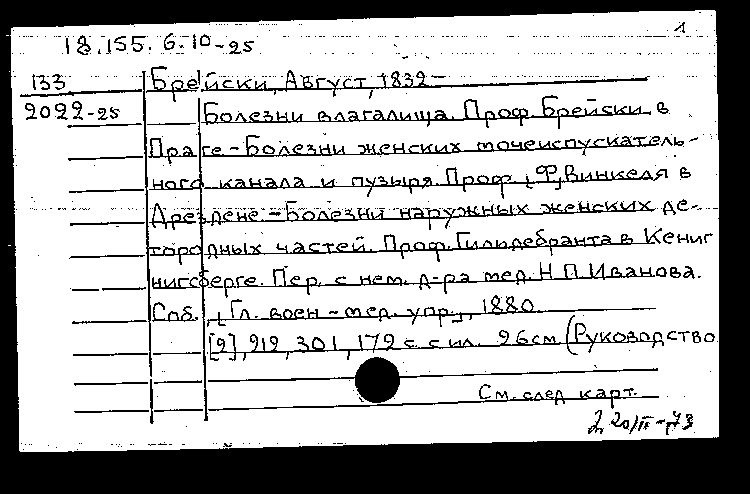 1
18.155.6.10-25
133 Брейски, Август, 1832-
2022-25 Болезни влагалища. Проф. Брейски в
Праге-Болезни женских мочеиспускатель-
ного канала и пузыря. Проф. [Ф] Винкеля в
Дрездене.-Болезни наружных женских де-
тородных частей. Проф. Гильдебранта в Кениг
нигсберге. Пер. с нем. д-ра мед. Н.П. Иванова.
Спб., [Гл. воен-мед. упр.], 1880.
[2], 212, 301, 172 с. с ил. 26см. (Руководство
См. след карт.
20/II-73